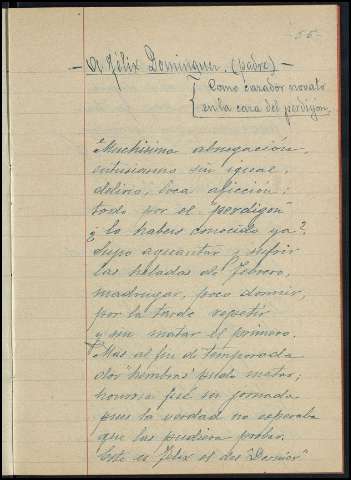 - 55 -
- A Félix Dominguez. (padre) -
Como cazador novato
en la caza del perdigon.
Muchisima abnegación,
entusiasmo sin igual,
delirio, loca aficción;
todo por el perdigon
¿lo habeis conocido ya?
Supo aguantar y sufrir
las heladas de Febrero,
madrugar, poco dormir,
por la tarde repetir
y sin matar el primero.
Mas al fin de temporada
dos "hembras" pudo matar;
honrosa fué su jornada
pues la verdad no esperaba
que las pudiera probar.
Este es Felix el des "Darnier"